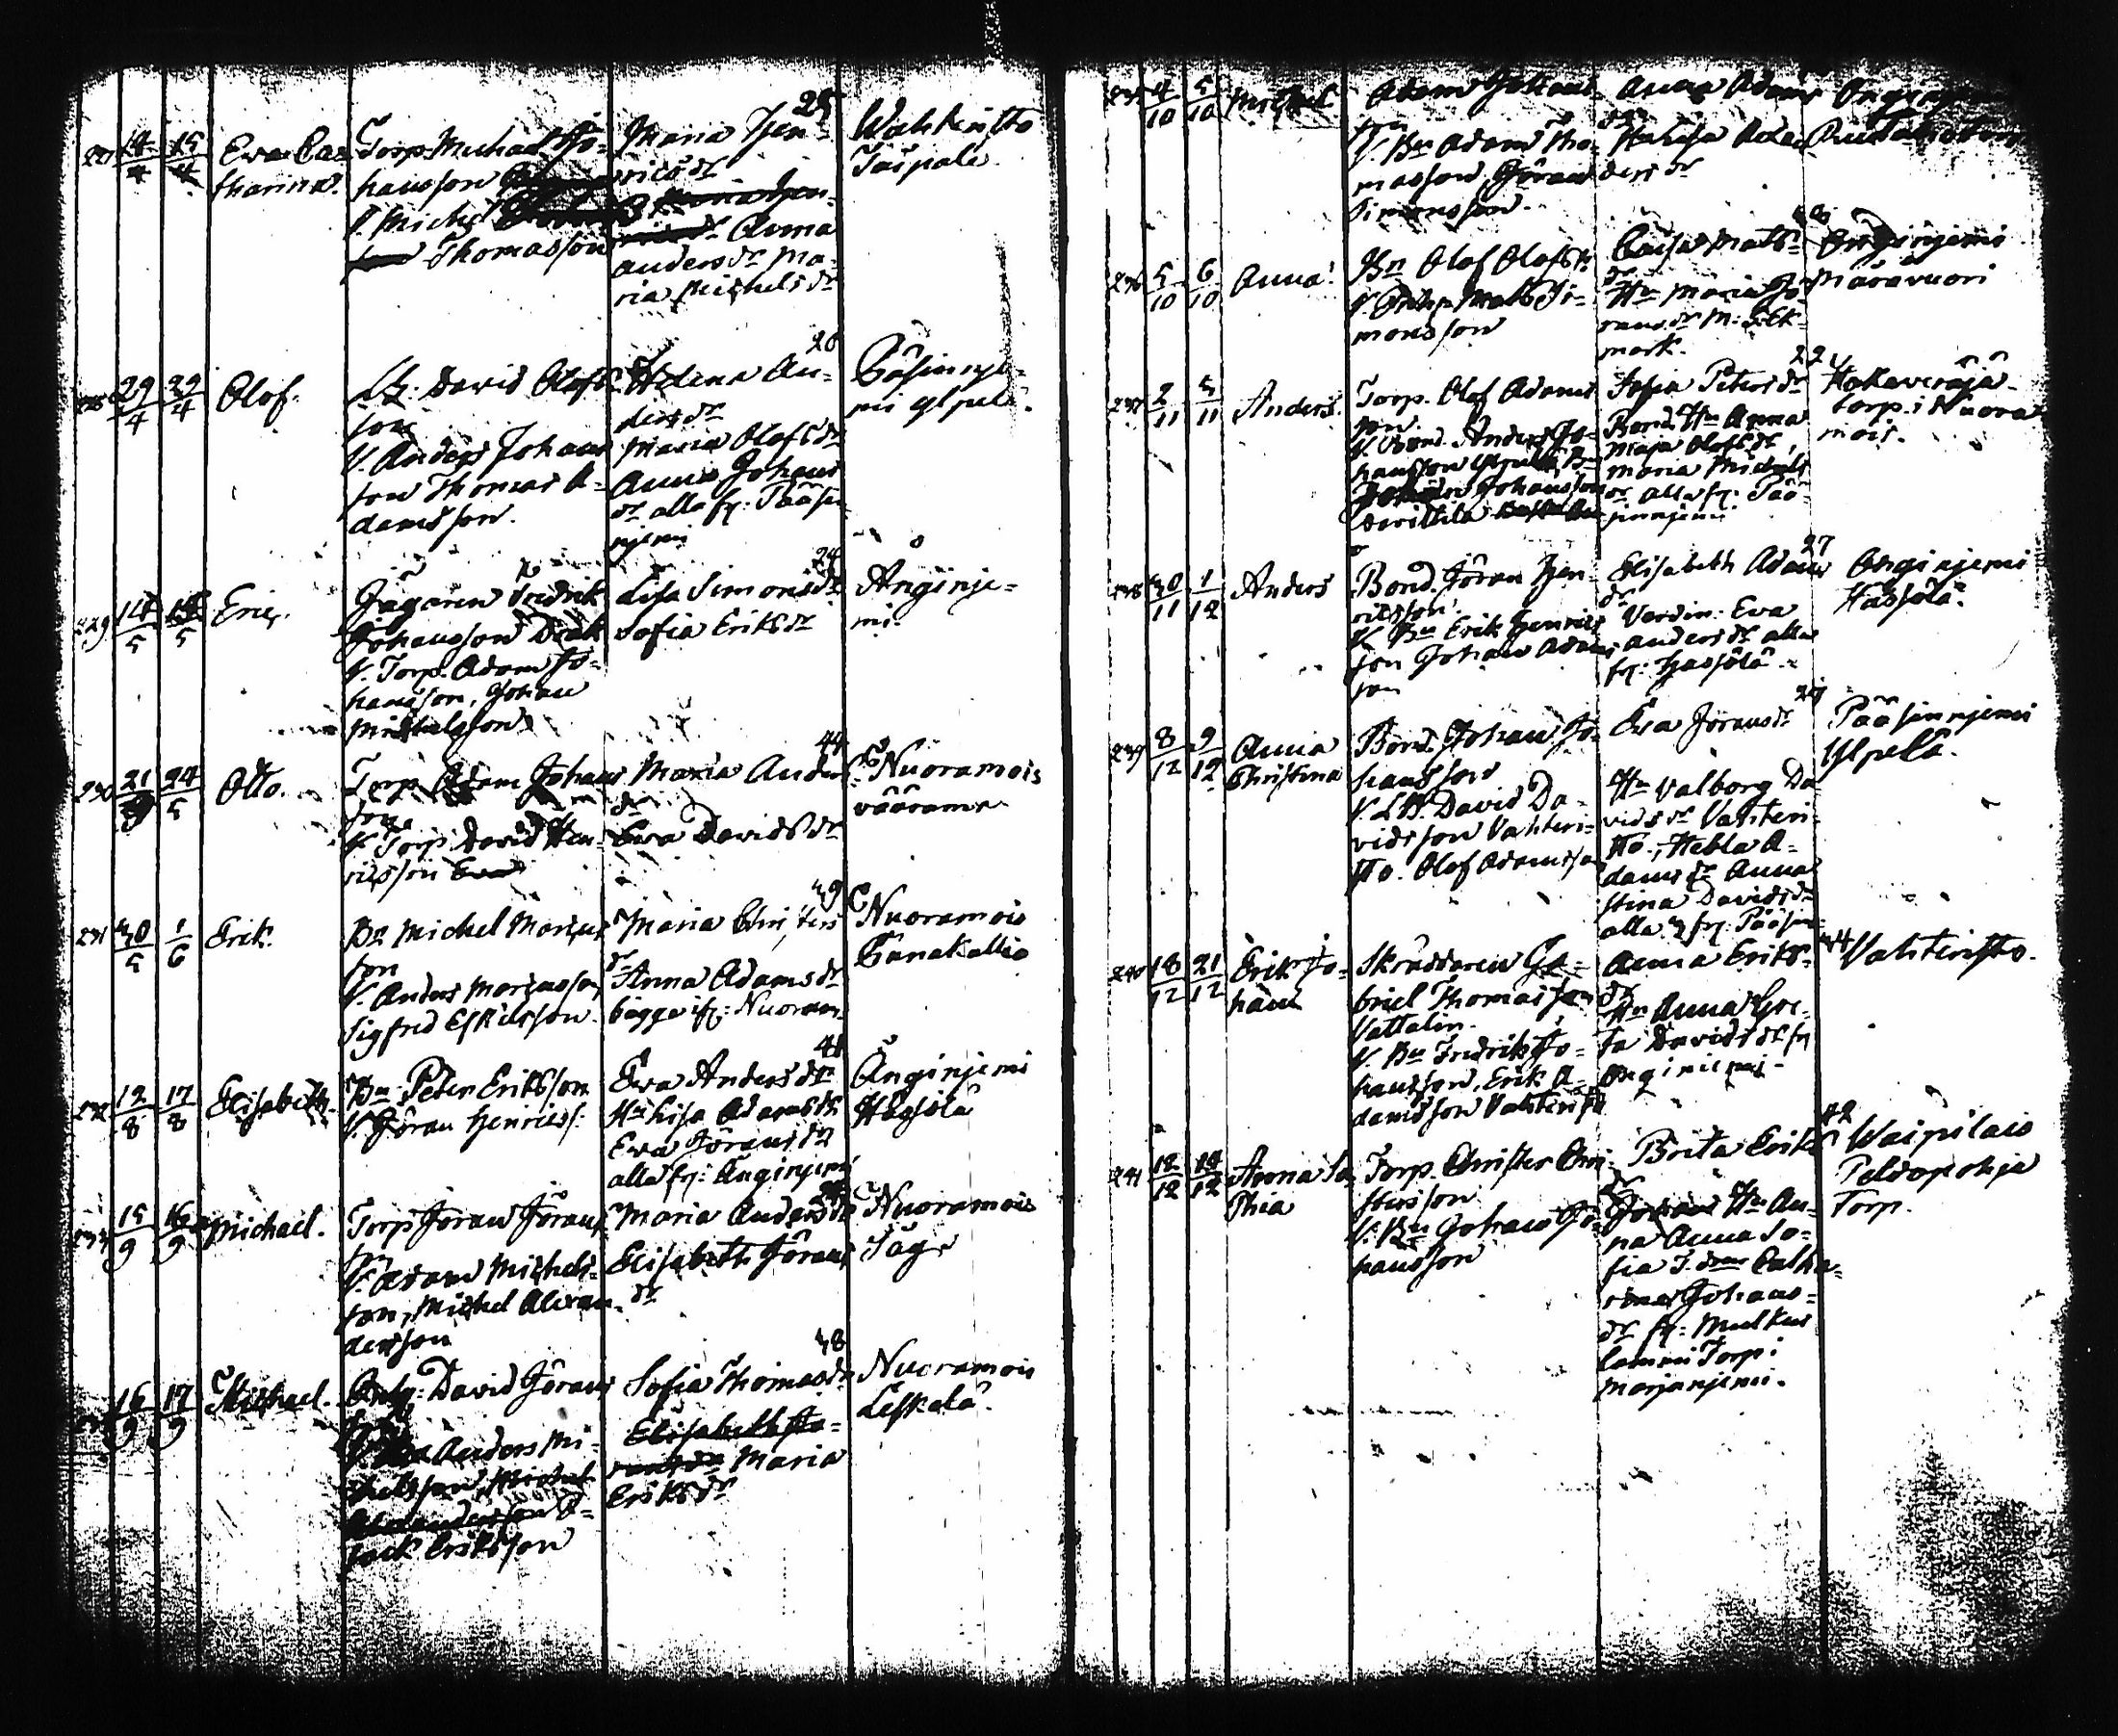 227 14/4 15/4 Eva Ca=
tharina.
Torp. Michael Jo=
hansson
V. Michel
Thomasson
Maria Hen= 25
ricsdr
Anna
Andersdr Ma=
ria Michelsdr
Wahteristo
Taipale.
228 29/4 29/4 Olof.
David Olofs=
son
V. Anders Johans
son Thomas A=
damsson.
Helena An= 28
dersdr
Maria Olofsdr
Anna Johans
dr alla fr: Pääsin
njemi
Päsinnje=
mi Ylpelä.
229 14/5 15/5 Eric.
Jägaren Fredrik
Johansson Drak
V. Torp. Adam Jo=
hansson, Johan
Michelsson
Lisa Simonsdr 24
Sofia Eriksdr
Ånginje=
mi.
230 21/5 24/5 Otto.
Torp Adam Johans
son
V. Torp. David Hen=
ricsson Eva
Maria Anders 44
dr
Eva Davidsdr
Nuoramois
vääramä
231 30/5 1/6 Erik.
Bn Michel Marcus
son
V. Anders Marcusson
Sigfred Eskilsson.
Maria Christers 39
dr
Anna Adamsdr
bägge fr: Nuoram.
Nuoramois
Tanakallio
232 12/8 17/8 Elisabeth.
Bn Peter Eriksson
V. Göran Henricss:
Eva Andersdr 41
Hu Lisa Adamsdr
Eva Göransdr
alla fr: Anginjemi
Änginjemi
Hasjola
233 15/9 16/9 Michael.
Torp Jöran Jörans
son
V. Adam Michels=
son, Michel Alexan=
dersson
Maria Andersdr
Elisabeth Jörans
dr
Nuoramois
Jägr
16/9 17/9 Michael.
David Jörans
Anders Mi=
chelsson, Michel
Alexandersson I=
sack Eriksson
Sofia Thomasdr 38
Elisabeth Jö=
ransdr Maria
Eriksdr
Nuoramois
Leskelä.
235 4/10 5/10 Michel
Adam Johans
V. Bn Adam Tho=
masson, Göran
Simonsson.
Anna Adams
dr
Hu Lisa Adam
dersdr
236 5/10 6/10 Anna.
Bn Olof Olofss
V. Mats Si=
monsson
Caisa Mats=
dr
Hu Maria Jö
ransdr M: S: Ek=
mark.
Onginjemi
Määrävuori
237 2/11 5/11 Anders.
Torp. Olof Adams
son.
V. Bond. Anders Jo=
hansson Ylpelä, Bn
Johan Johansson
Sofia Petersdr 22
Bond. Hu Anna
Maja Olofsdr,
Maria Michels
dr alla fr: Pää=
sinnjemi
Hokaveräjä
torp. i Nuora
mois.
238 30/11 1/12 Anders
Bond. Jöran Hen=
ricsson
V. Bn Erik Henrics
son Johan Adams
son
Elisabeth Adams 27
dr
Värdin: Eva
Andersdr alla
fr: Hasjölä.
Onginjemi
Hasjölä.
239 8/12 9/12 Anna
Christina
Bond. Johan Jo
hansson
V. David Da=
vidsson Vahteri=
sto. Olof Adamsson
Eva Jöransdr
Hu Valborg Da
vidsdr Vahteri=
sto., Hebla A=
damsdr Anna
Stina Davidsdr
alla 4 fr: Pääsin
Pääsinnjemi
Ylpelä.
240 18/12 21/12 Erik Jo=
han
Skräddaren Ga=
briel Thomasson
Vattalin.
V. Bn Fredrik Jo=
hansson, Erik A=
damsson Vahteristo
Anna Eriks= 34
dr
Hu Anna Gre=
ta Davidsdr fr
Onginiemi.
Vahteristo.
241 12/12 14/12 Anna So
phia
Torp. Christer Chri=
stersson
V. Bn Johan Jo=
hansson
Brita Eriks 42
dr
Hu An=
na Anna So=
fia J.dotter Catha=
rina Johans=
dr fr: Mulkus
lammi Torp i
Marjanjemi.
Waipilais
Peldopohja
Torp.